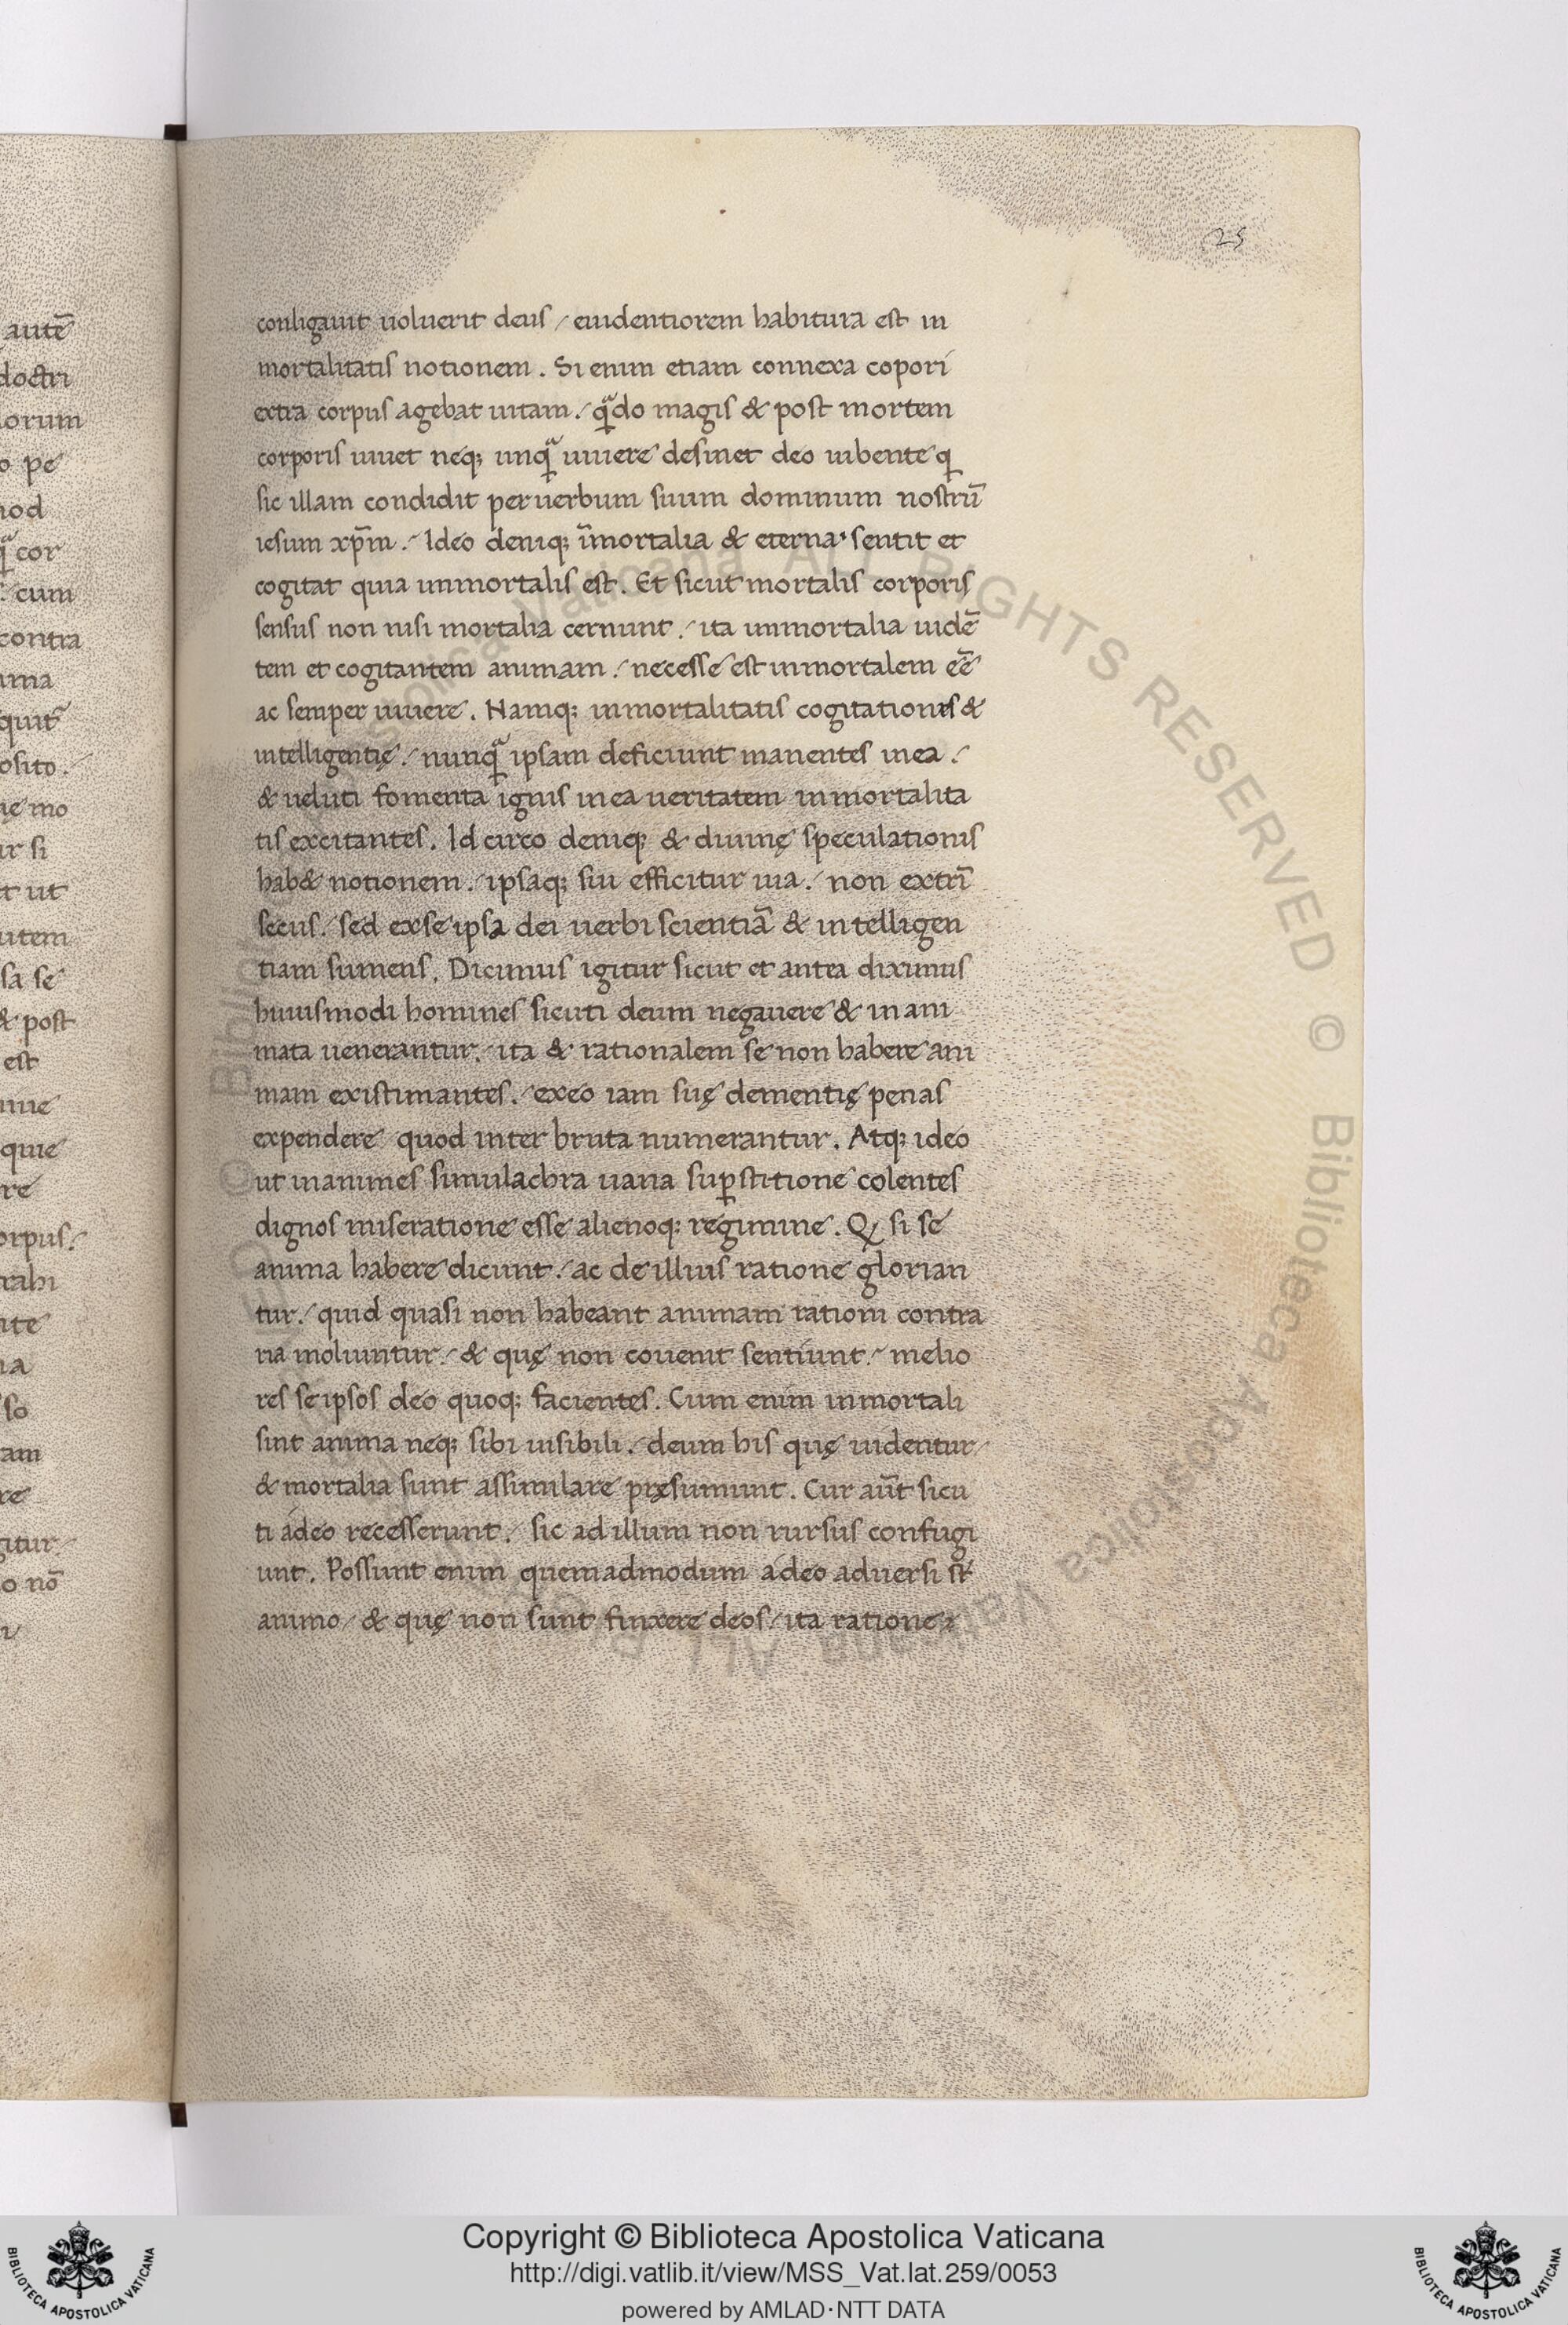 25
conligauit uoluerit deus / euidentiorem habitura est in
mortalitatis notionem . Si enim etiam connexa copori
extra corpus agebat uitam ./ qᷓdo magis & post mortem
corporis uiuet neq; unqᷓ uiuere desinet deo iubente q
sic illam condidit per uerbum suum dominum nostrū
iesum xp̄m ./ Ideo deniq; īmortalia & eterna sentit et
cogitat quia inmortalis est . Et sicut mortalis corporis
sensus non nisi mortalia cernunt ./ ita inmortalia uidē
tem et cogitantem animam ./ necesse est inmortalem eē
ac semper uiuere . Namq; inmortalitatis cogitationes &
intelligentię ./ nunqᷓ ipsam deficiunt manentes in ea ./
& ueluti fomenta ignis in ea ueritatem inmortalita
tis excitantes . Id circo deniq; & diuinę speculationis
hab& notionem ./ ipsaq; sui efficitur uia ./ non extrī
secus ./ sed ex se ipsa dei uerbi scientiā & intelligen
tiam sumens . Dicimus igitur sicut et antea diximus
huiusmodi homines sicuti deum negauere & inani
mata uenerantur ./ ita & rationalem se non habere ani
mam existimantes ./ ex eo iam suę dementię penas
expendere quod inter bruta numerantur . Atq; ideo
ut inanimes simulachra uana sup̱stitione colentes
dignos miseratione esse alienoq; regimine . Q si se
anima habere dicunt ./ ac de illius ratione glorian
tur ./ quid quasi non habeant animam rationi contra
ria moliuntur ./ & quę non couenit sentiunt ./ melio
res se ipsos deo quoq; facientes . Cum enim inmortali
sint anima neq; sibi uisibili ./ deum his quę uidentur /
& mortalia sunt assimilare pręsumunt . Cur aūt sicu
ti a deo recesserunt ./ sic ad illum non rursus confugi
unt . Possunt enim quemadmodum a deo aduersi st̄
animo / & quę non sunt finxere deos / ita ratione
autē
doctri
lorum
o pe
cor
cum
contra
osito ./
ur si
t ut
utem
sa se
& post
est
quie
re
orpus ./
rahi
so
am
re
gitur /
o nō
© Biblioteca Apostolica Vaticana ALL RIGHTS RESERVED © Biblioteca Apostolica Vaticana ALL
Copyright © Biblioteca Apostolica Vaticana
http://digi.vatlib.it/view/MSS_Vat.lat.259/0053
powered by AMLAD·NTT DATA
BIBLIOTECA APOSTOLICA VATICANA
BIBLIOTECA APOSTOLICA VATICANA